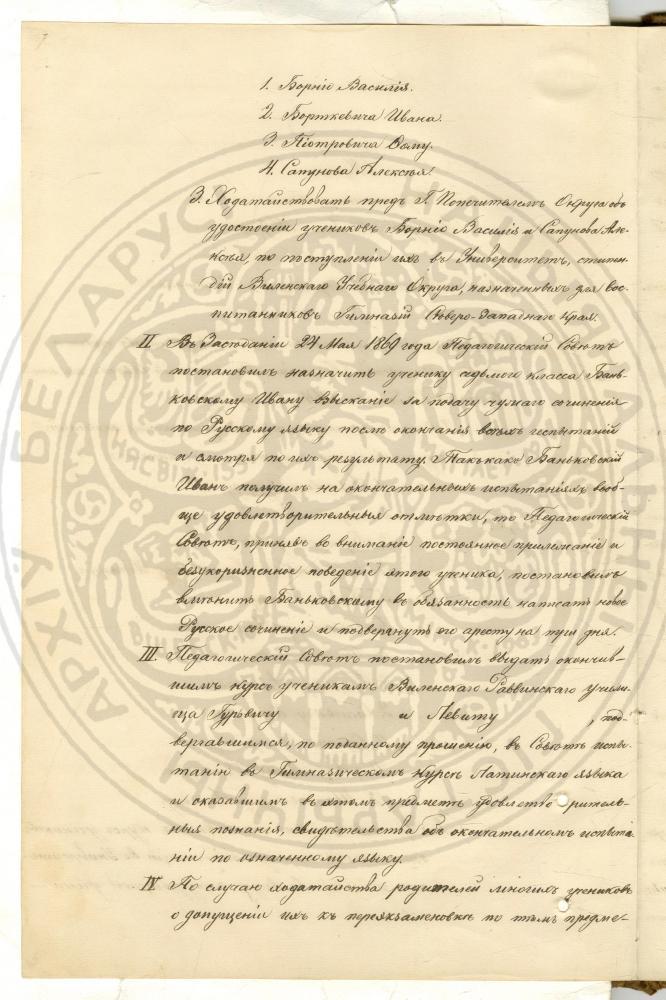 1. Борнio Василiя.
2. Борткевича Ивана.
3. Піотровича Ѳому.
4. Сапунова Алексѣя.
3. Ходатайствовать предъ Г. Попечителемъ Округа объ
удостоеніи учениковъ Борніо Василія и Сапунова Але-
ксѣя, по поступленіи ихъ въ Университетъ, стипен-
дій Виленскаго Учебнаго Округа, назначенныхъ для вос-
питанниковъ Гимназій Сѣверо-Западнаго края.
II Въ Засѣданіи 24 Мая 1869 года Педагогическій Совѣтъ
постановилъ назначить ученику седьмого класса Бань-
ковскому Ивану взысканіе за подачу чужаго сочиненія
по Русскому языку послѣ окончанія всѣхъ испытаній
и смотря по ихъ результату. Такъ какъ Баньковскій
Иванъ получилъ на окончательныхъ испытаніяхъ вооб-
ще удовлетворительныя отмѣтки, то Педагогическій
Совѣтъ, принявъ во вниманіе постоянное прилежаніе и
безукоризненное поведеніе этого ученика, постановилъ
вмѣнить Баньковскому въ обязанность написать новое
Русское сочиненіе и подвергнуть его аресту на три дня.
III. Педагогическій Совѣтъ постановилъ выдать окончив-
шимъ курсъ ученикамъ Виленскаго Раввинскаго учили-
ща Гурвичу и Левиту, под-
вергавшимся, по поданному прошенію, въ Совѣтѣ испы-
танію въ Гимназическомъ курсѣ Латинскаго языка
и оказавшимъ въ этомъ предметѣ удовлетворитель-
ныя познанія, свидѣтельства объ окончательномъ испыта-
ніи по означенному языку.
IV По случаю ходатайства родителей многихъ учениковъ
о допущеніи ихъ къ переэкзаменовкѣ по тѣмъ предме-